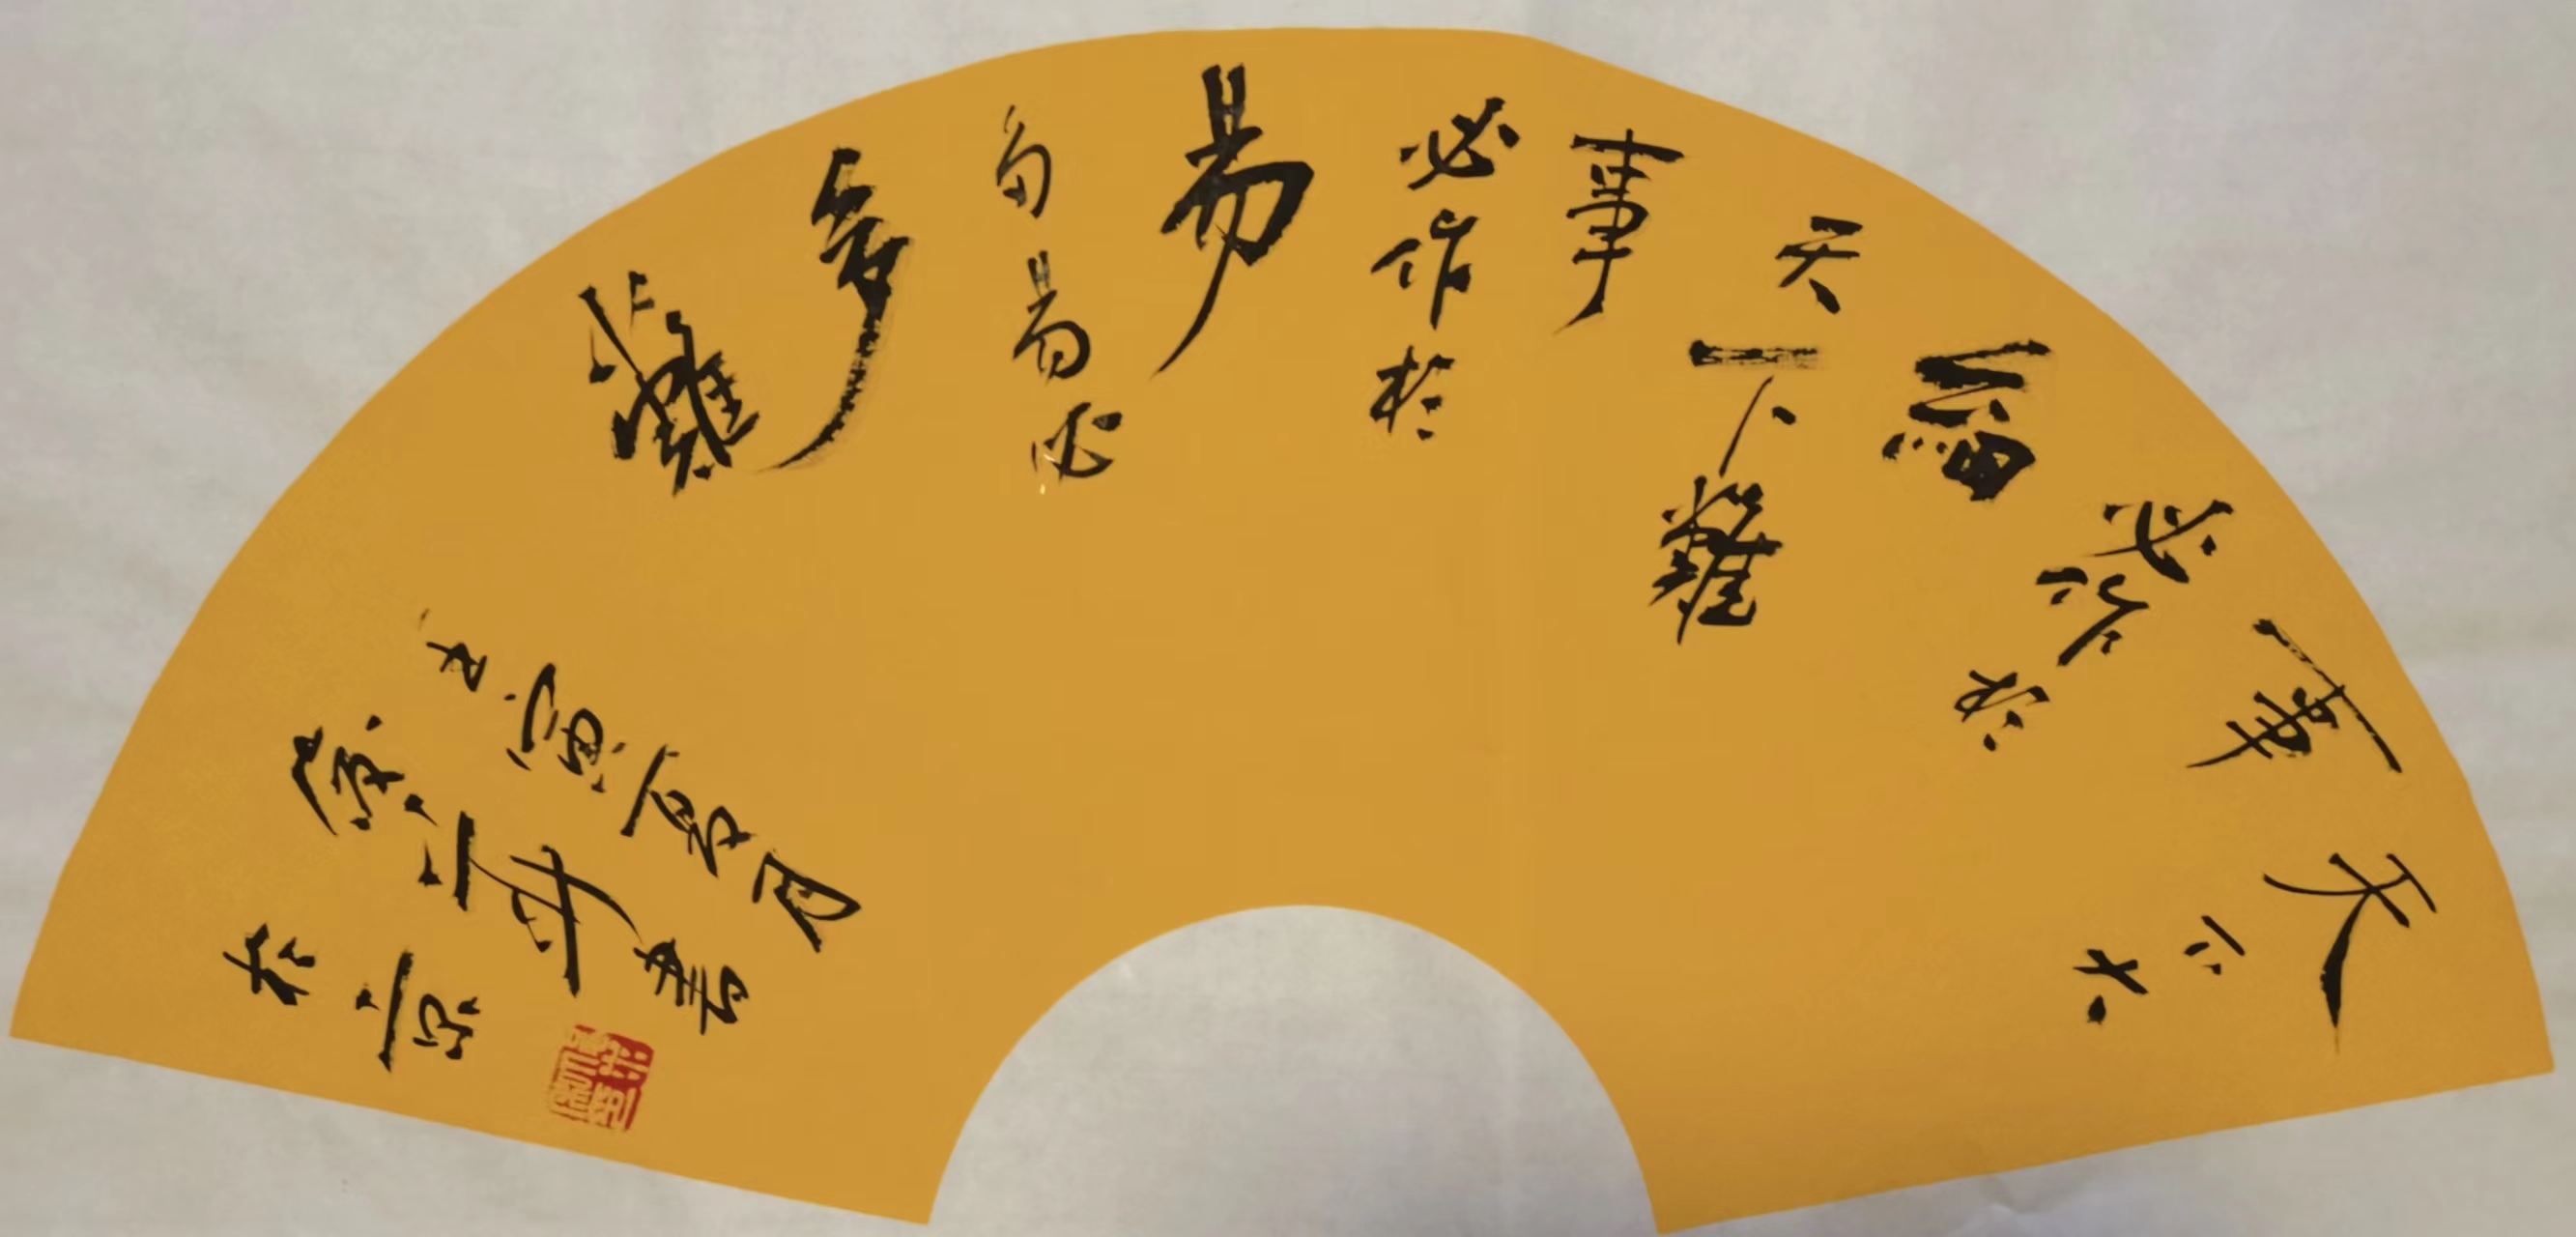 天下大
事
必作於
細
天下難
事
必作於
易
多易必
多
難
壬寅夏月
書
於京